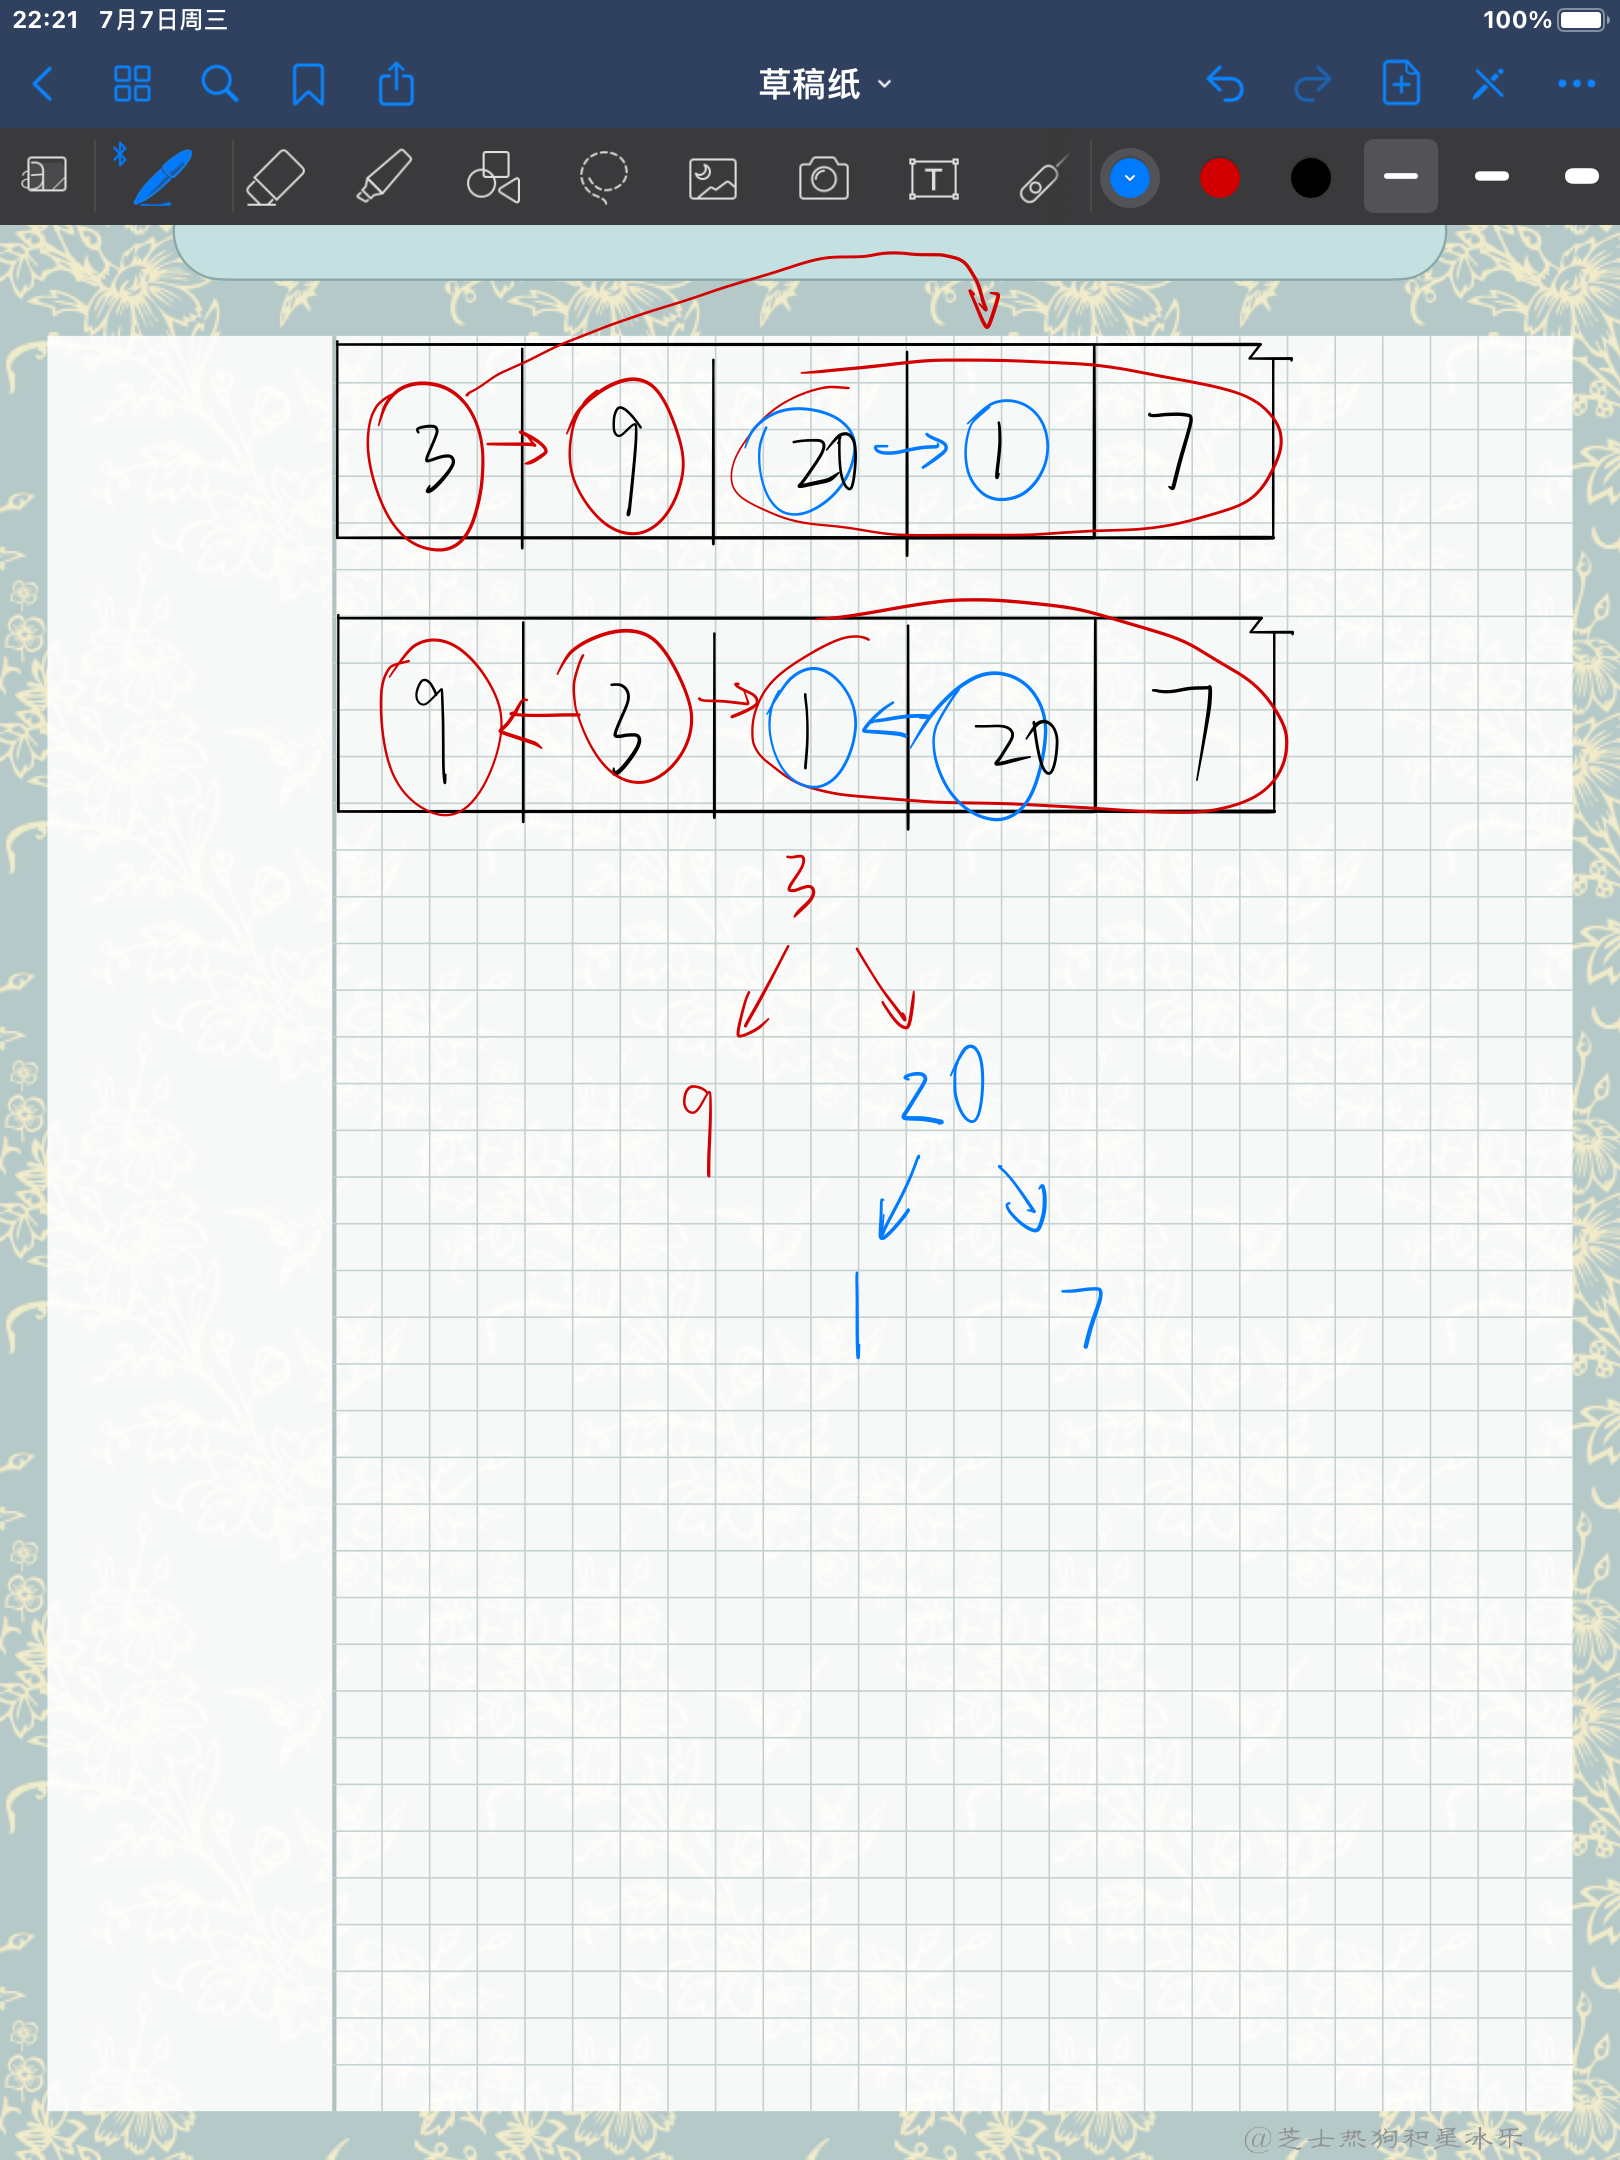 22:21 7月7日周三 100%
草稿纸
T
3 9 20 1 7
9 3 1 20 7
3
9 20
1 7
@芝士热狗和星冰乐